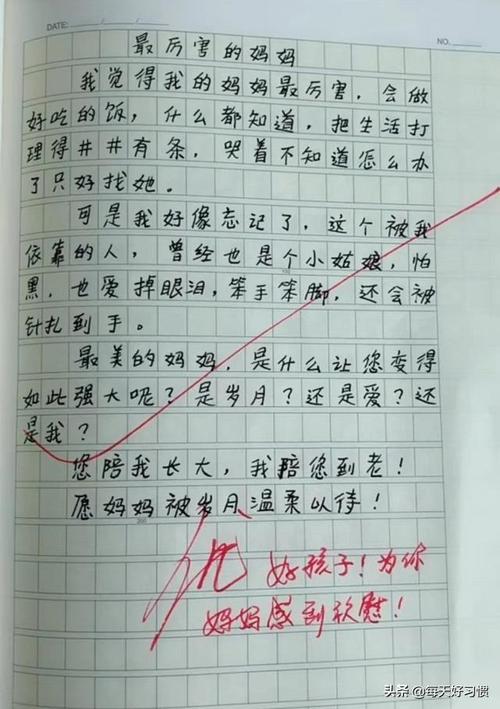 DATE: / /
NO.
最厉害的妈妈
我觉得我的妈妈最厉害，会做
好吃的饭，什么都知道，把生活打
理得井井有条，哭着不知道怎么办
了只好找她。
可是我好像忘记了，这个被我
依靠的人，曾经也是个小姑娘，怕
黑，也爱掉眼泪，笨手笨脚，还会被
针扎到手。
最美的妈妈，是什么让您变得
如此强大呢？是岁月？还是爱？还
是我？
您陪我长大，我陪您到老！
愿妈妈被岁月温柔以待！
优
好孩子！为你
妈妈感到欣慰！
头条 @每天好习惯